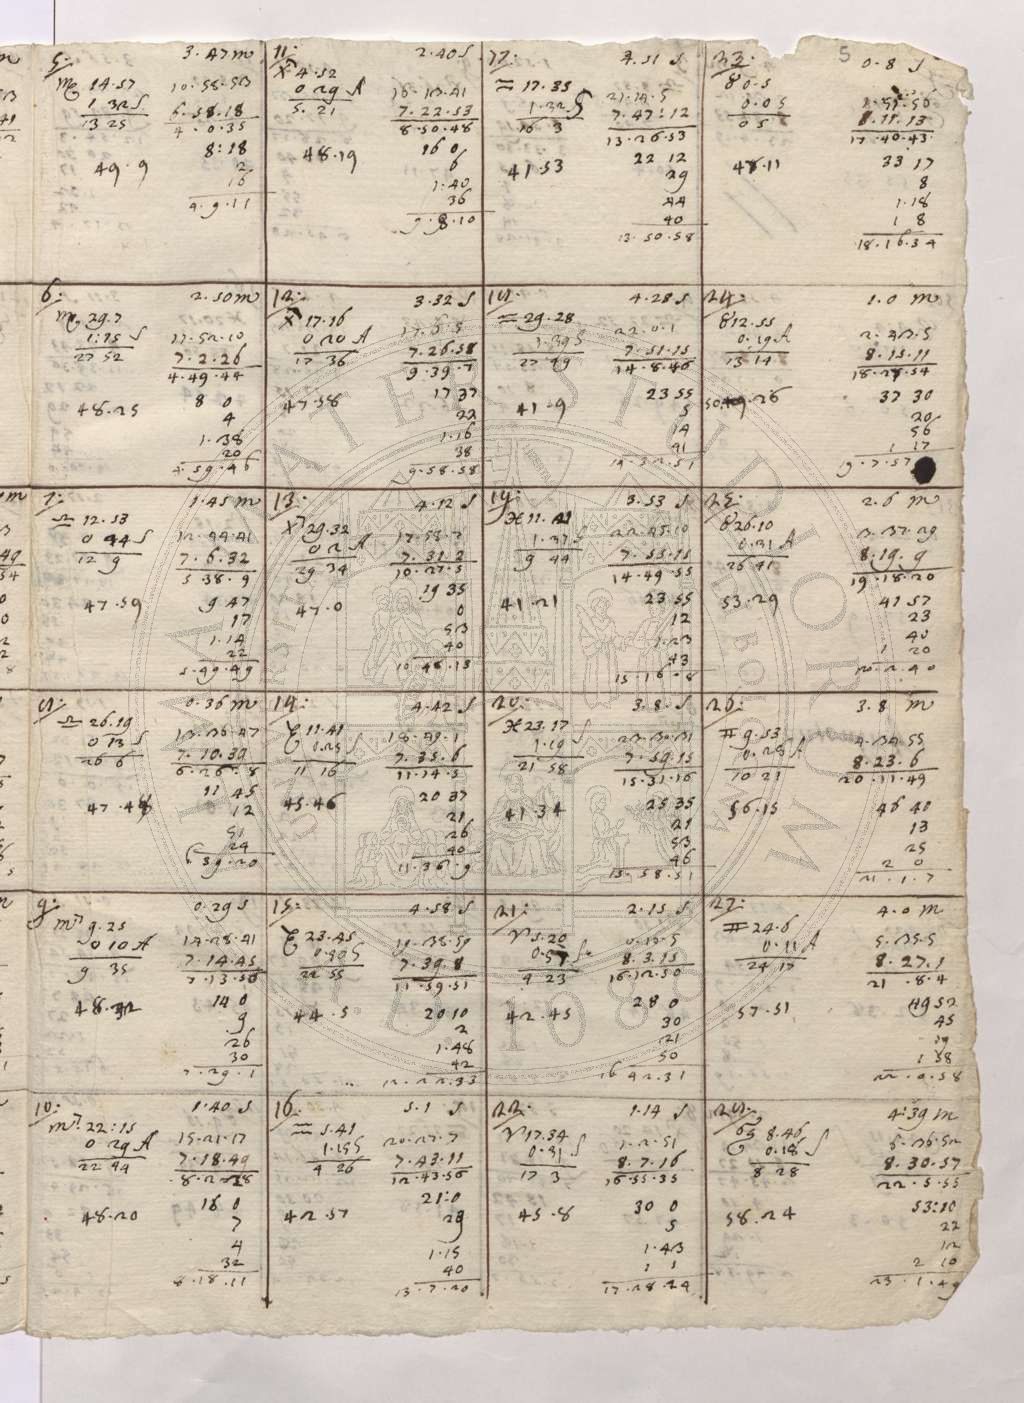 5
5:
3.47 m
♏ 14.57
10.58.53
1.32 S
6.58.18
13 25
4.0.35
8:18
49.9
2
16
4.9.11
6:
2.50 m
♏ 29.7
17.52.10
1.15 S
7.2.26
27 52
4.49.44
8 0
48.25
4
1.38
20
4.59.46
7:
1.45 m
♎ 12.53
12.44.41
0 44 S
7.6.32
12 9
5 38.9
9 47
47.59
17
1.14
22
5.49.49
0.36 m
♎ 26.19
13.36.47
0 13 S
7.10.39
26 6
6.26.8
11 45
47.48
12
51
24
6.39.20
9:
0.29 S
♍ 9.25
14.28.41
0 10 A
7.14.45
9 35
7.13.56
14 0
48.32
9
26
30
7.29.1
10:
1.40 S
♍ 22:15
15.21.17
0 29 A
7.18.49
22 44
8.2.28
16 0
48.20
7
4
32
8.18.11
11:
2.40 S
4.52
16.13.41
0 29 A
7.22.53
5.21
8.50.48
16 0
48.19
6
1.40
36
9.8.10
12:
3.32 S
17.16
17.6.5
0 20 A
7.26.58
17 36
9.39.7
17 37
47.58
22
1.16
38
9.58.58
13:
4.12 S
29.32
17.58.7
0 2 A
7.31.2
29 34
10.27.5
19 35
47.0
0
53
40
10.48.13
14:
4.42 S
11.41
18.49.1
0.25 S
7.35.6
11 16
11.14.5
20 37
45.46
21
26
40
11.36.9
15:
4.58 S
23.45
19.38.59
0.50 S
7.39.8
22 55
11.59.51
20 10
44.5
2
1.48
42
12.22.33
16:
5.1 S
♒ 5.41
20.27.7
1.15 S
7.43.11
4 26
12.43.56
21:0
42.57
29
1.15
40
13.7.20
17:
4.51 S
♒ 17.35
21.14.5
1.32 S
7.47:12
16 3
13.26.53
22 12
41.53
29
44
40
13.50.58
4.28 S
♒ 29.28
22.0.1
1.39 S
7.51.15
27 49
14.8.46
23 55
41.9
5
14
41
14.32.51
19:
3.53 S
♓ 11.21
22.45.10
1.37 S
7.55.15
9 44
14.49.55
23 55
41.21
12
1.23
43
15.16.8
20:
3.8.S
♓ 23.17
23.30.31
1.19 S
7.59.15
21 58
15.31.16
25 35
41.34
21
53
46
15.58.51
21:
2.15 S
♈ 5.20
0.57 S
8.3.15
4 23
16.12.50
28 0
42.45
30
21
50
16 42.31
22:
1.14 S
♈ 17.34
1.2.51
0.31 S
8.7.16
17 3
16.55.35
30 0
45.8
5
1.43
1 1
17.28.24
23:
0.8 S
♉ 0.5
1.51.56
0.05
8.11.13
0 5
17.40.43
33 17
48.11
8
1.18
1 8
18.16.34
24:
1.0 m
♉ 12.55
0.19 A
8.15.11
13 14
18.28.54
37 30
50.26
20
56
1 17
19.7.57
25:
2.6 m
♉ 26.10
3.37.29
0.31 A
8.19.9
26 41
19.18.20
41 57
53.29
23
40
1 20
20.2.40
26:
3.8 m
♊ 9.53
4.34.55
0.28 A
8.23.6
10 21
20.11.49
46 40
56.15
13
25
2 0
21.1.7
27:
4.0 m
♊ 24.6
5.35.5
0.11 A
8.27.1
24 17
21.8.4
49 52
57.51
45
19
1 58
22.0.58
4:39 m
♋ 8.46
6.36.52
0.18 S
8.30.57
8 28
22.5.55
53:10
58.24
22
12
2 10
23.1.49